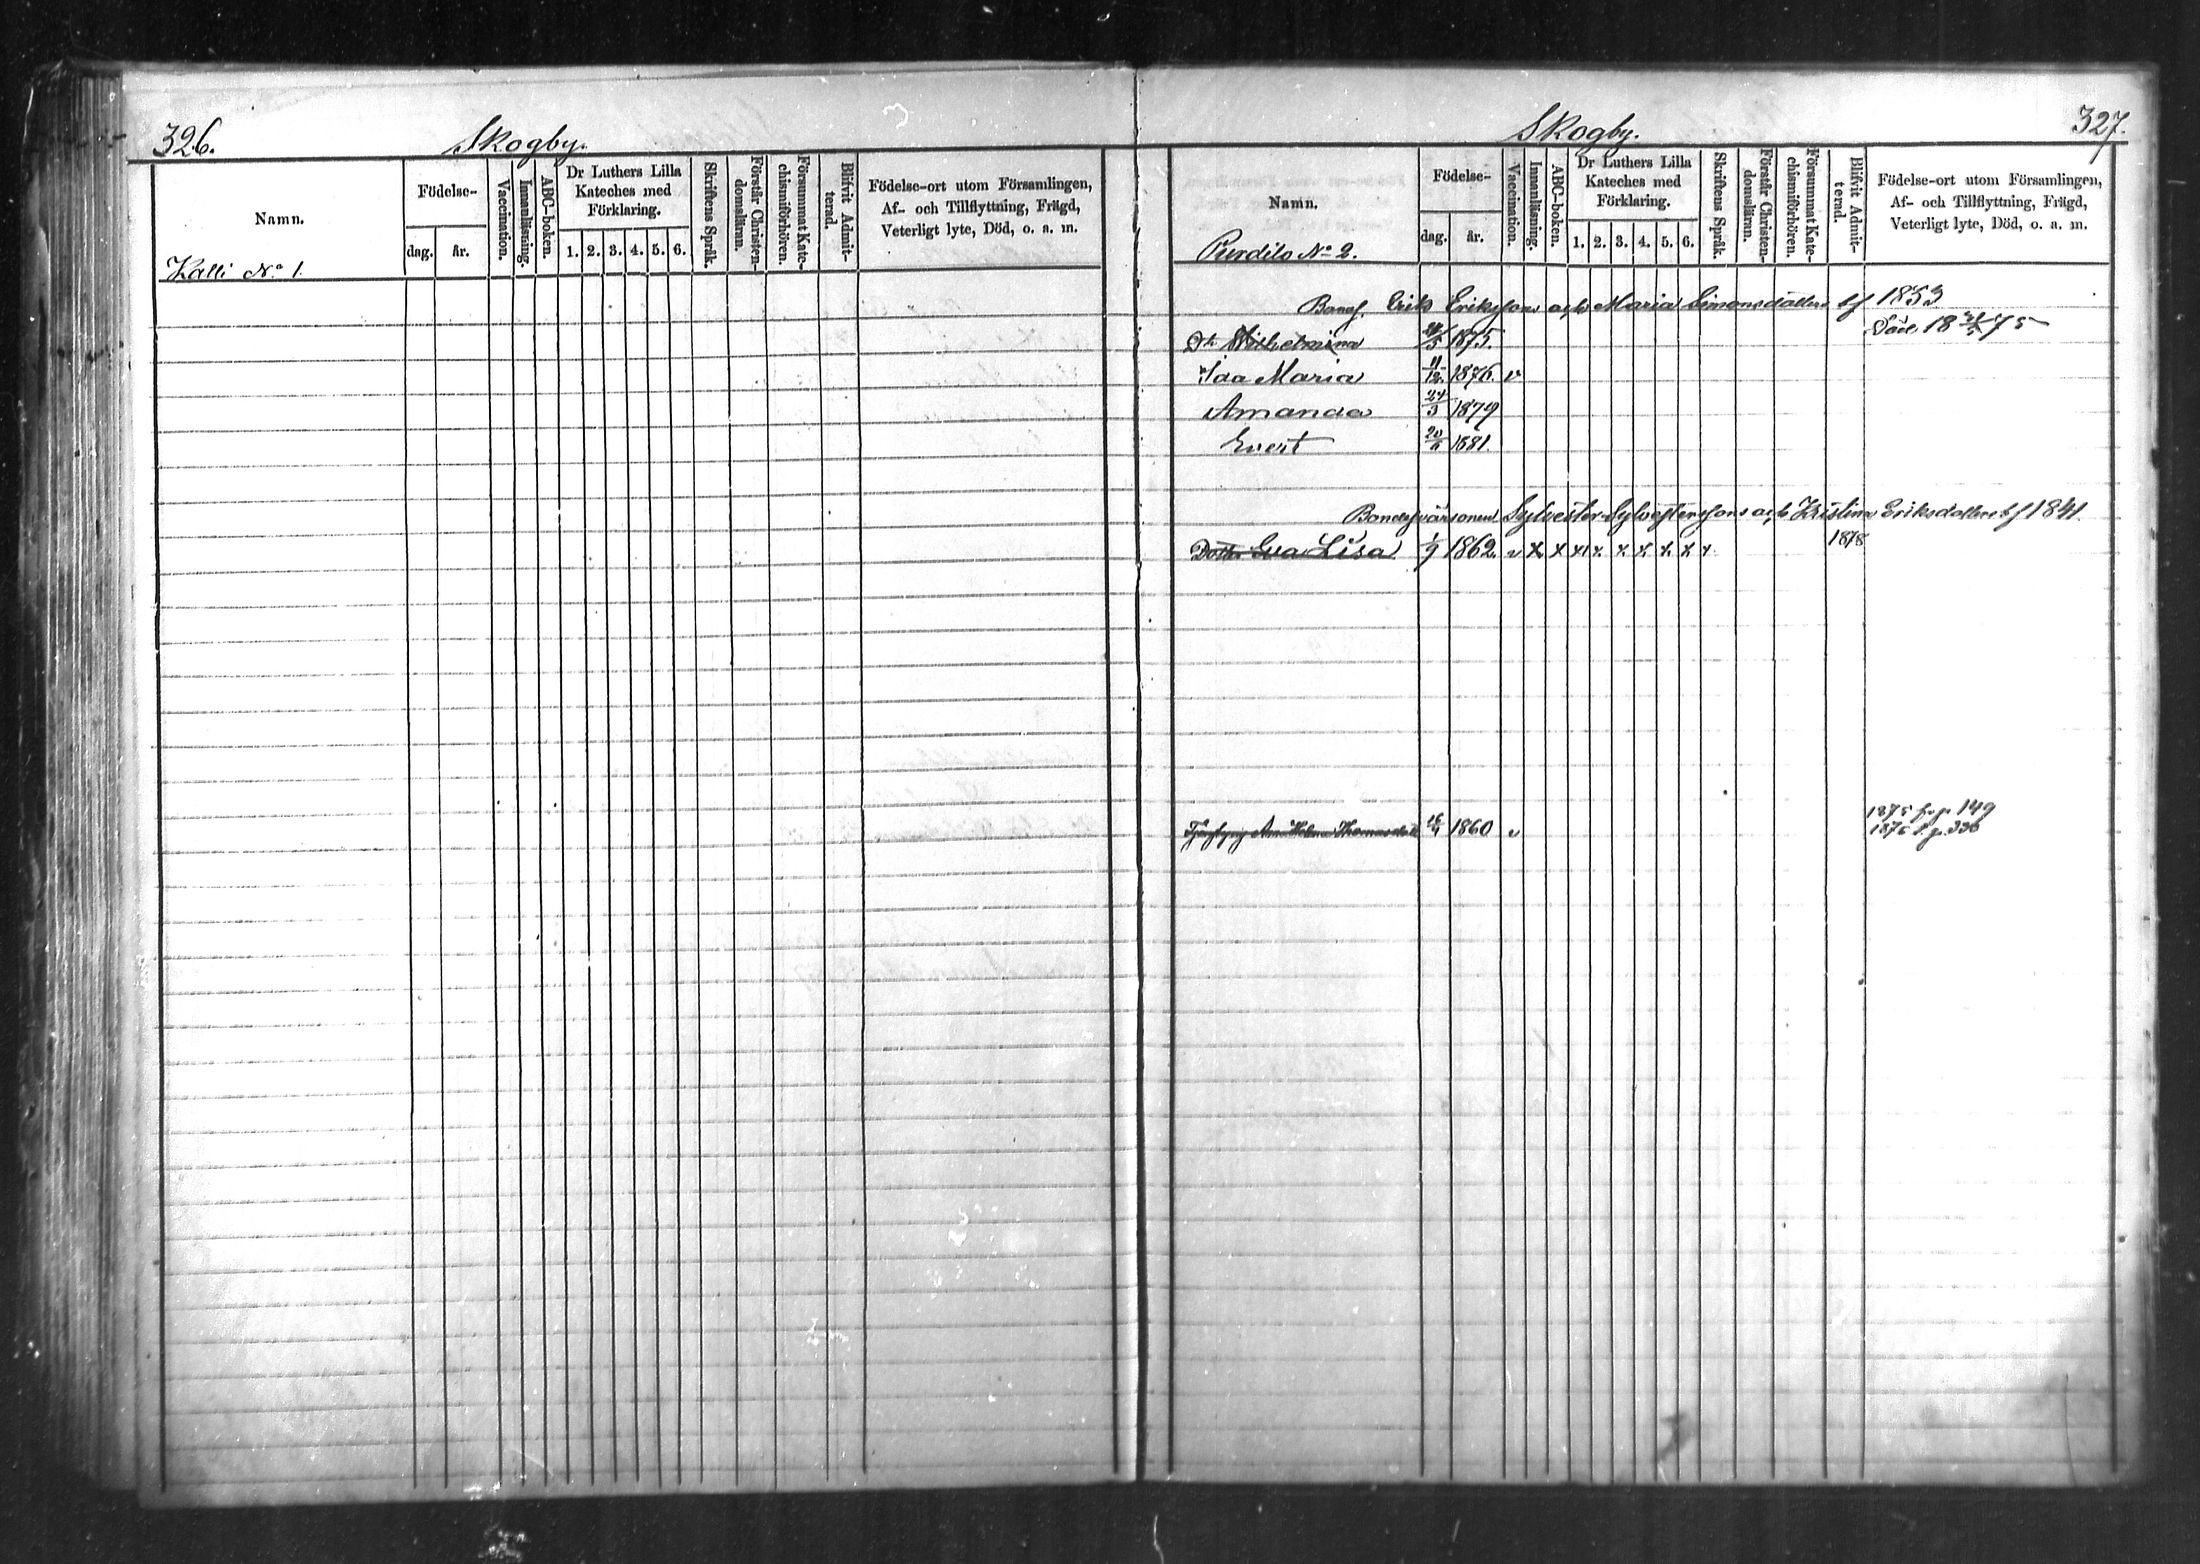 326.
Skogby.
Namn.
Födelse-
dag. år.
Vaccination.
Innanläsning.
ABC-boken.
Dr Luthers Lilla
Kateches med
Förklaring.
1. 2. 3. 4. 5. 6.
Skriftens Språk.
Förstår Christen-
domsläran.
Försummat Kate-
chismiförhören.
Blifvit Admit-
terad.
Födelse-ort utom Församlingen,
Af- och Tillflyttning, Frägd,
Veterligt lyte, Död, o. a. m.
Kalli No 1.
Skogby.
327.
Namn.
Födelse-
dag. år.
Vaccination.
Innanläsning.
ABC-boken.
Dr Luthers Lilla
Kateches med
Förklaring.
1. 2. 3. 4. 5. 6.
Skriftens Språk.
Förstår Christen-
domsläran.
Försummat Kate-
chismiförhören.
Blifvit Admit-
terad.
Födelse-ort utom Församlingen,
Af- och Tillflyttning, Frägd,
Veterligt lyte, Död, o. a. m.
Purdilo No 2.
Bond. Erik Erikssons och Maria Simonsdotters bf 1853
Dr Wilhelmina 1875. Död 18 75
Ida Maria 11/12 1876. v
Amanda 24/3 1879
Evert 1881.
Sylvester Sylvesterssons och Kristina Eriksdotters bf 1841.
Dottr Eva Lisa 1/9 1862. v x x x x x x x x x 1878
Helena Thomasdott 1860 v 1875 fr. p. 149
1876 t. p. 336